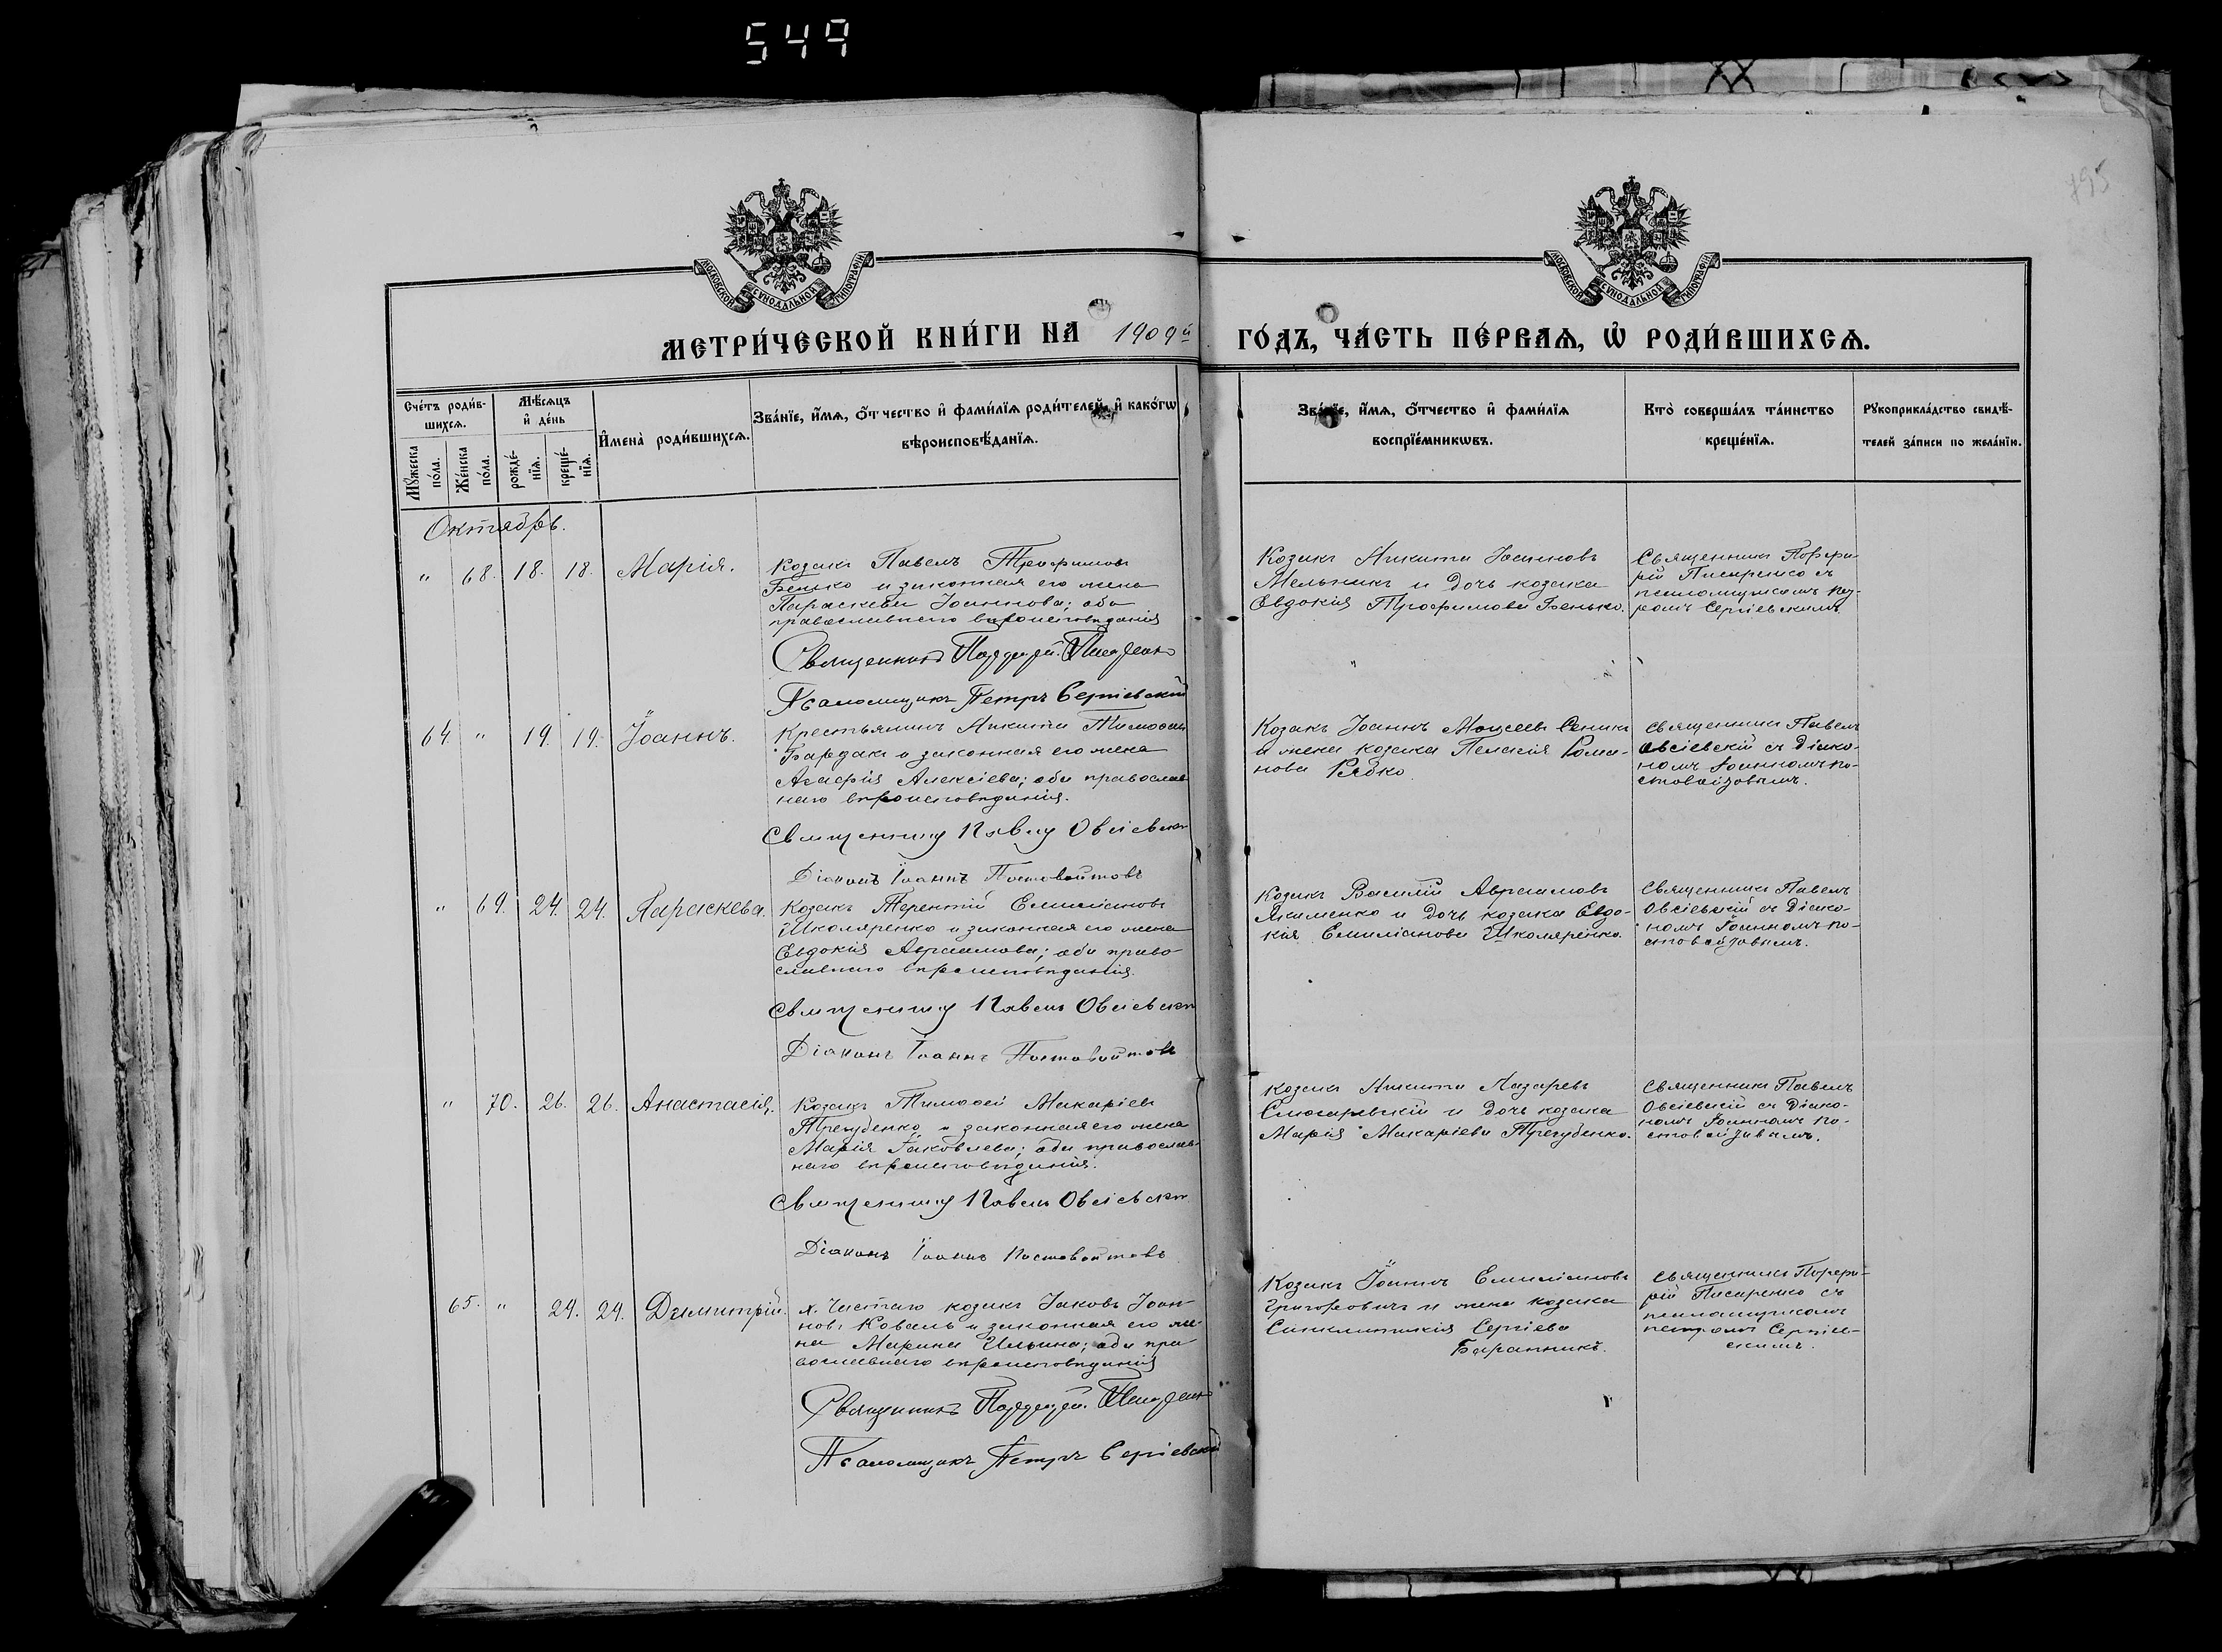 549
795
МОСКОВСКОЙ СУНОДАЛЬНОЙ ТИПОГРАФІИ
МОСКОВСКОЙ СУНОДАЛЬНОЙ ТИПОГРАФІИ
МЕТРИ́ЧЕСКОЙ КНИ́ГИ НА 1909й ГО́ДЪ, ЧА́СТЬ ПЕ́РВАѦ, Ѡ҆ РОДИ́ВШИХСѦ.
Счетъ роди́в-
шихсѧ.
Мꙋ́жеска
по́ла.
Же́нска
по́ла.
Мѣ́сѧцъ
и҆ де́нь
рожде́-
нїѧ.
креще́-
нїѧ.
И҆мена̀ роди́вшихсѧ.
Зва́нїе, и҆́мѧ, ѻ҆́тчество и҆ фами́лїѧ роди́телей, и҆ како́гѡ
вѣроисповѣ́данїѧ.
Зва́нїе, и҆́мѧ, ѻ҆́тчество и҆ фами́лїѧ
воспрїе́мникѡвъ.
Кто̀ соверша́лъ та́инство
креще́нїѧ.
Рꙋкоприкла́дство свидѣ́-
телей за́писи по жела́нїю.
Октябрь.
" 68. 18. 18. Марія.
Козакъ Павелъ Трофимовъ
Бенько и законная его жена
Параскева Іоаннова; оба
православнаго вѣроисповѣданія
Священникъ Порфирій Писаренко
Псаломщикъ Петръ Сергіевскій
Козакъ Никита Іоанновъ
Мельникъ и дочь козака
Евдокія Трофимова Бенько.
Священникъ Порфи-
рій Писаренко съ
псаломщикомъ Пет-
ромъ Сергіевскимъ
64. " 19. 19. Іоаннъ.
Крестьянинъ Никита Тимоѳеевъ
Бардакъ и законная его жена
Агафія Алексіева; оба православ-
наго вѣроисповѣданія.
Священникъ Павелъ Овсіевскій
Діаконъ Іоаннъ Постовойтовъ
Козакъ Іоаннъ Моисеевъ Сеникъ
и жена козака Пелагія Рома-
нова Рябко
Священникъ Павелъ
Овсіевскій съ Діако-
номъ Іоанномъ По-
стовойтовымъ.
" 69. 24. 24. Параскева.
Козакъ Терентій Емиліановъ
Школяренко и законная его жена
Евдокія Авраамова; оба право-
славнаго вѣроисповѣданія.
Священникъ Павелъ Овсіевскій
Діаконъ Іоаннъ Постовойтовъ
Козакъ Василій Авраамовъ
Якименко и дочь козака Евдо-
кія Емиліанова Школяренко.
Священникъ Павелъ
Овсіевскій съ Діако-
номъ Іоанномъ По-
стовойтовымъ.
" 70. 26. 26. Анастасія.
Козакъ Тимоѳей Макаріевъ
Трегубенко и законная его жена
Марія Іаковлева; оба православ-
наго вѣроисповѣданія.
Священникъ Павелъ Овсіевскій
Діаконъ Іоаннъ Постовойтовъ
Козакъ Никита Лазаревъ
Слюсаревскій и дочь козака
Марія Макаріева Трегубенко.
Священникъ Павелъ
Овсіевскій съ Діако-
номъ Іоанномъ По-
стовойтовымъ.
65. " 24. 24. Димитрій.
х. Чистаго козакъ Іаковъ Іоан-
новъ Коваль и законная его же-
на Марина Ильина; оба пра
вославнаго вѣроисповѣданія
Священникъ Порфирій Писаренко
Псаломщикъ Петръ Сергіевскій
Козакъ Іоаннъ Емиліановъ
Григоровичъ и жена козака
Синклитикія Сергіева
Баранникъ.
Священникъ Порфи-
рій Писаренко съ
псаломщикомъ
Петромъ Сергіев-
скимъ.